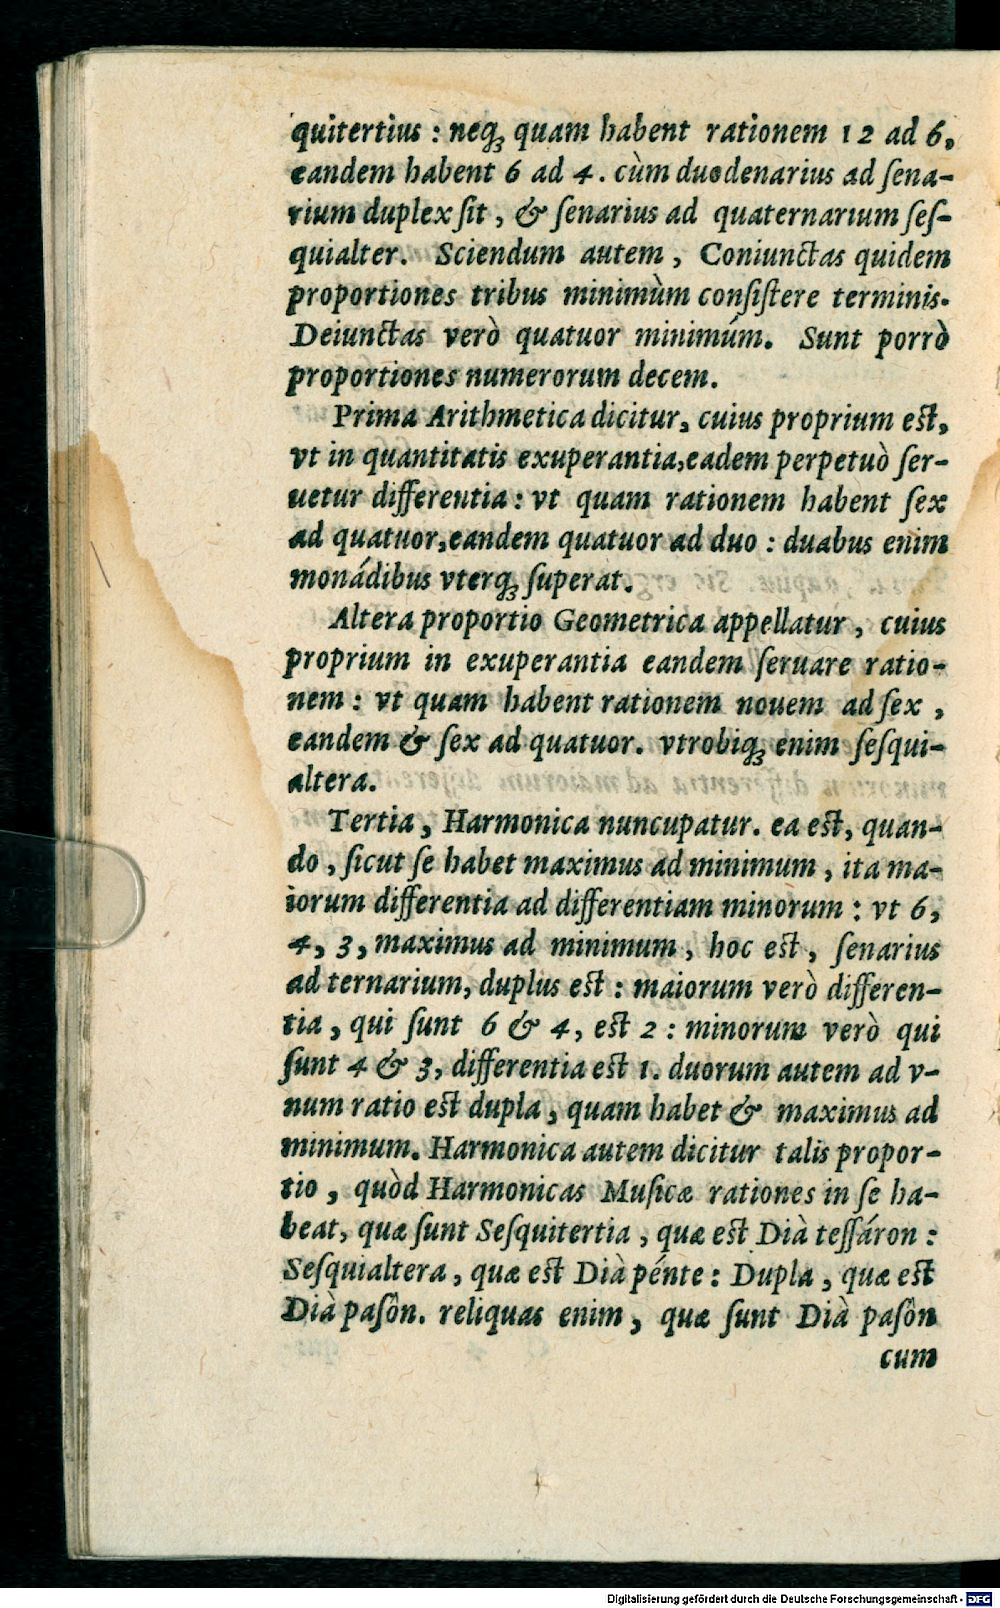 quitertius : neqꝫ quam habent rationem 12 ad 6,
eandem habent 6 ad 4. cùm duodenarius ad ſena-
rium duplex ſit, & ſenarius ad quaternarium ſeſ-
quialter. Sciendum autem, Coniunctas quidem
proportiones tribus minimùm conſiſtere terminis.
Deiunctas verò quatuor minimúm. Sunt porrò
proportiones numerorum decem.
Prima Arithmetica dicitur, cuius proprium est,
vt in quantitatis exuperantia, eadem perpetuò ſer-
uetur differentia : vt quam rationem habent ſex
ad quatuor, eandem quatuor ad duo : duabus enim
monádibus vterqꝫ ſuperat.
Altera proportio Geometrica appellatur, cuius
proprium in exuperantia eandem ſeruare ratio-
nem : vt quam habent rationem nouem ad ſex,
eandem & ſex ad quatuor. vtrobiqꝫ enim ſeſqui-
altera.
Tertia, Harmonica nuncupatur. ea est, quan-
do, ſicut ſe habet maximus ad minimum, ita ma-
iorum differentia ad differentiam minorum : vt 6,
4, 3, maximus ad minimum, hoc est, ſenarius
ad ternarium, duplus est : maiorum verò differen-
tia, qui ſunt 6 & 4, est 2 : minorum verò qui
ſunt 4 & 3, differentia est 1. duorum autem ad v-
num ratio est dupla, quam habet & maximus ad
minimum. Harmonica autem dicitur talis propor-
tio, quòd Harmonicas Muſicæ rationes in ſe ha-
beat, quæ ſunt Seſquitertia, quæ est Dià teſſáron :
Seſquialtera, quæ est Dià pénte : Dupla, quæ est
Dià paſôn. reliquas enim, quæ ſunt Dià paſôn
cum
Digitalisierung gefördert durch die Deutsche Forschungsgemeinschaft - DFG